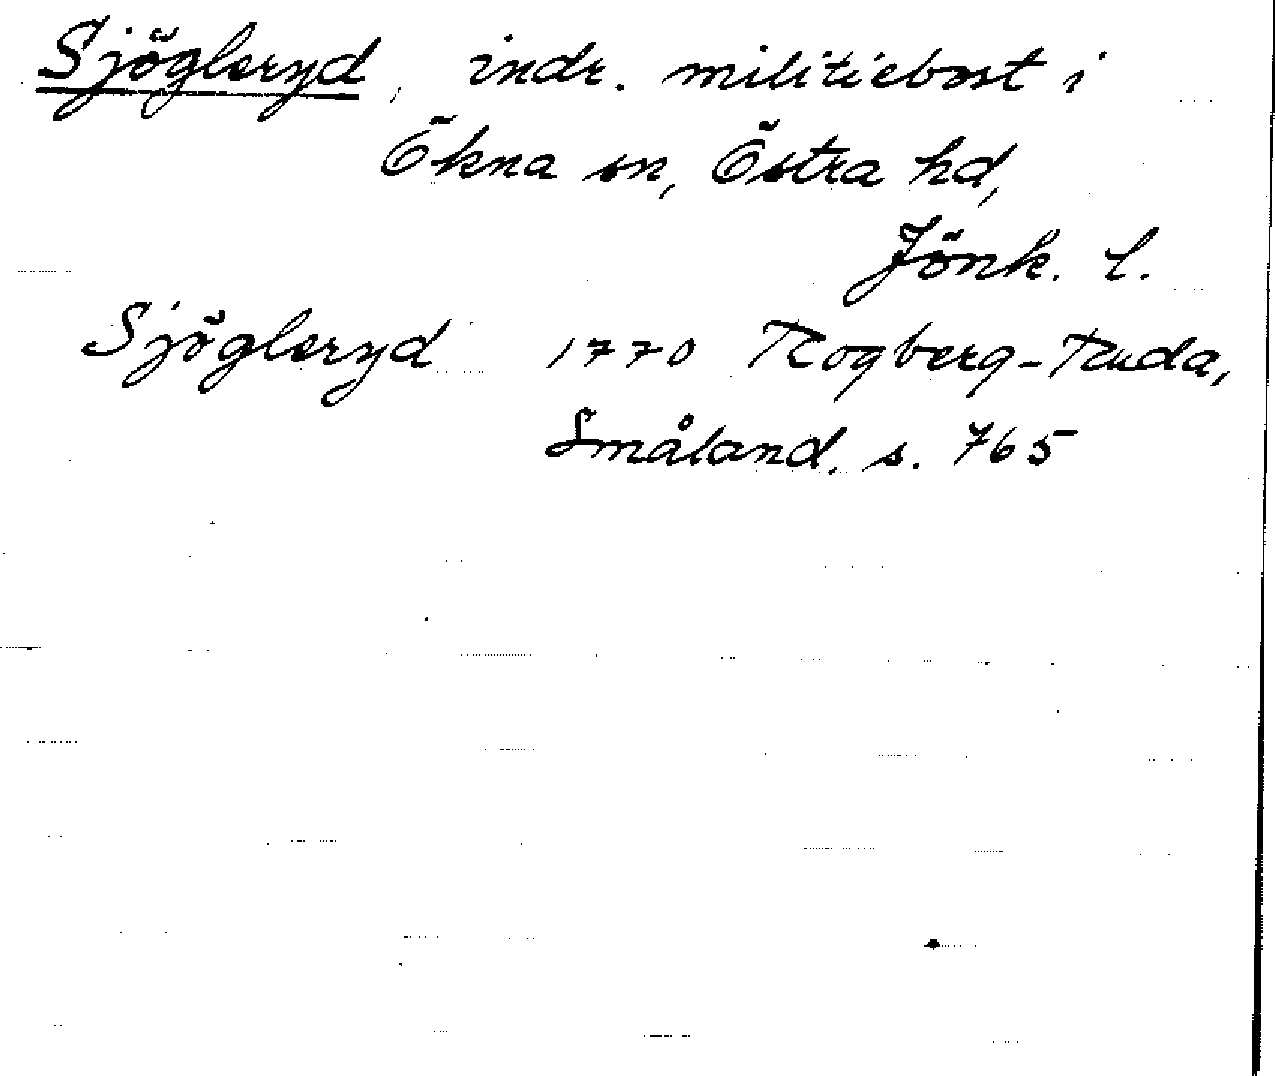 Sjögleryd, indr. militiebost i
Ökna sn, Östra hd,
Jönk. l.
Sjögleryd 1770 Rogberg-Ruda,
Småland. s. 765